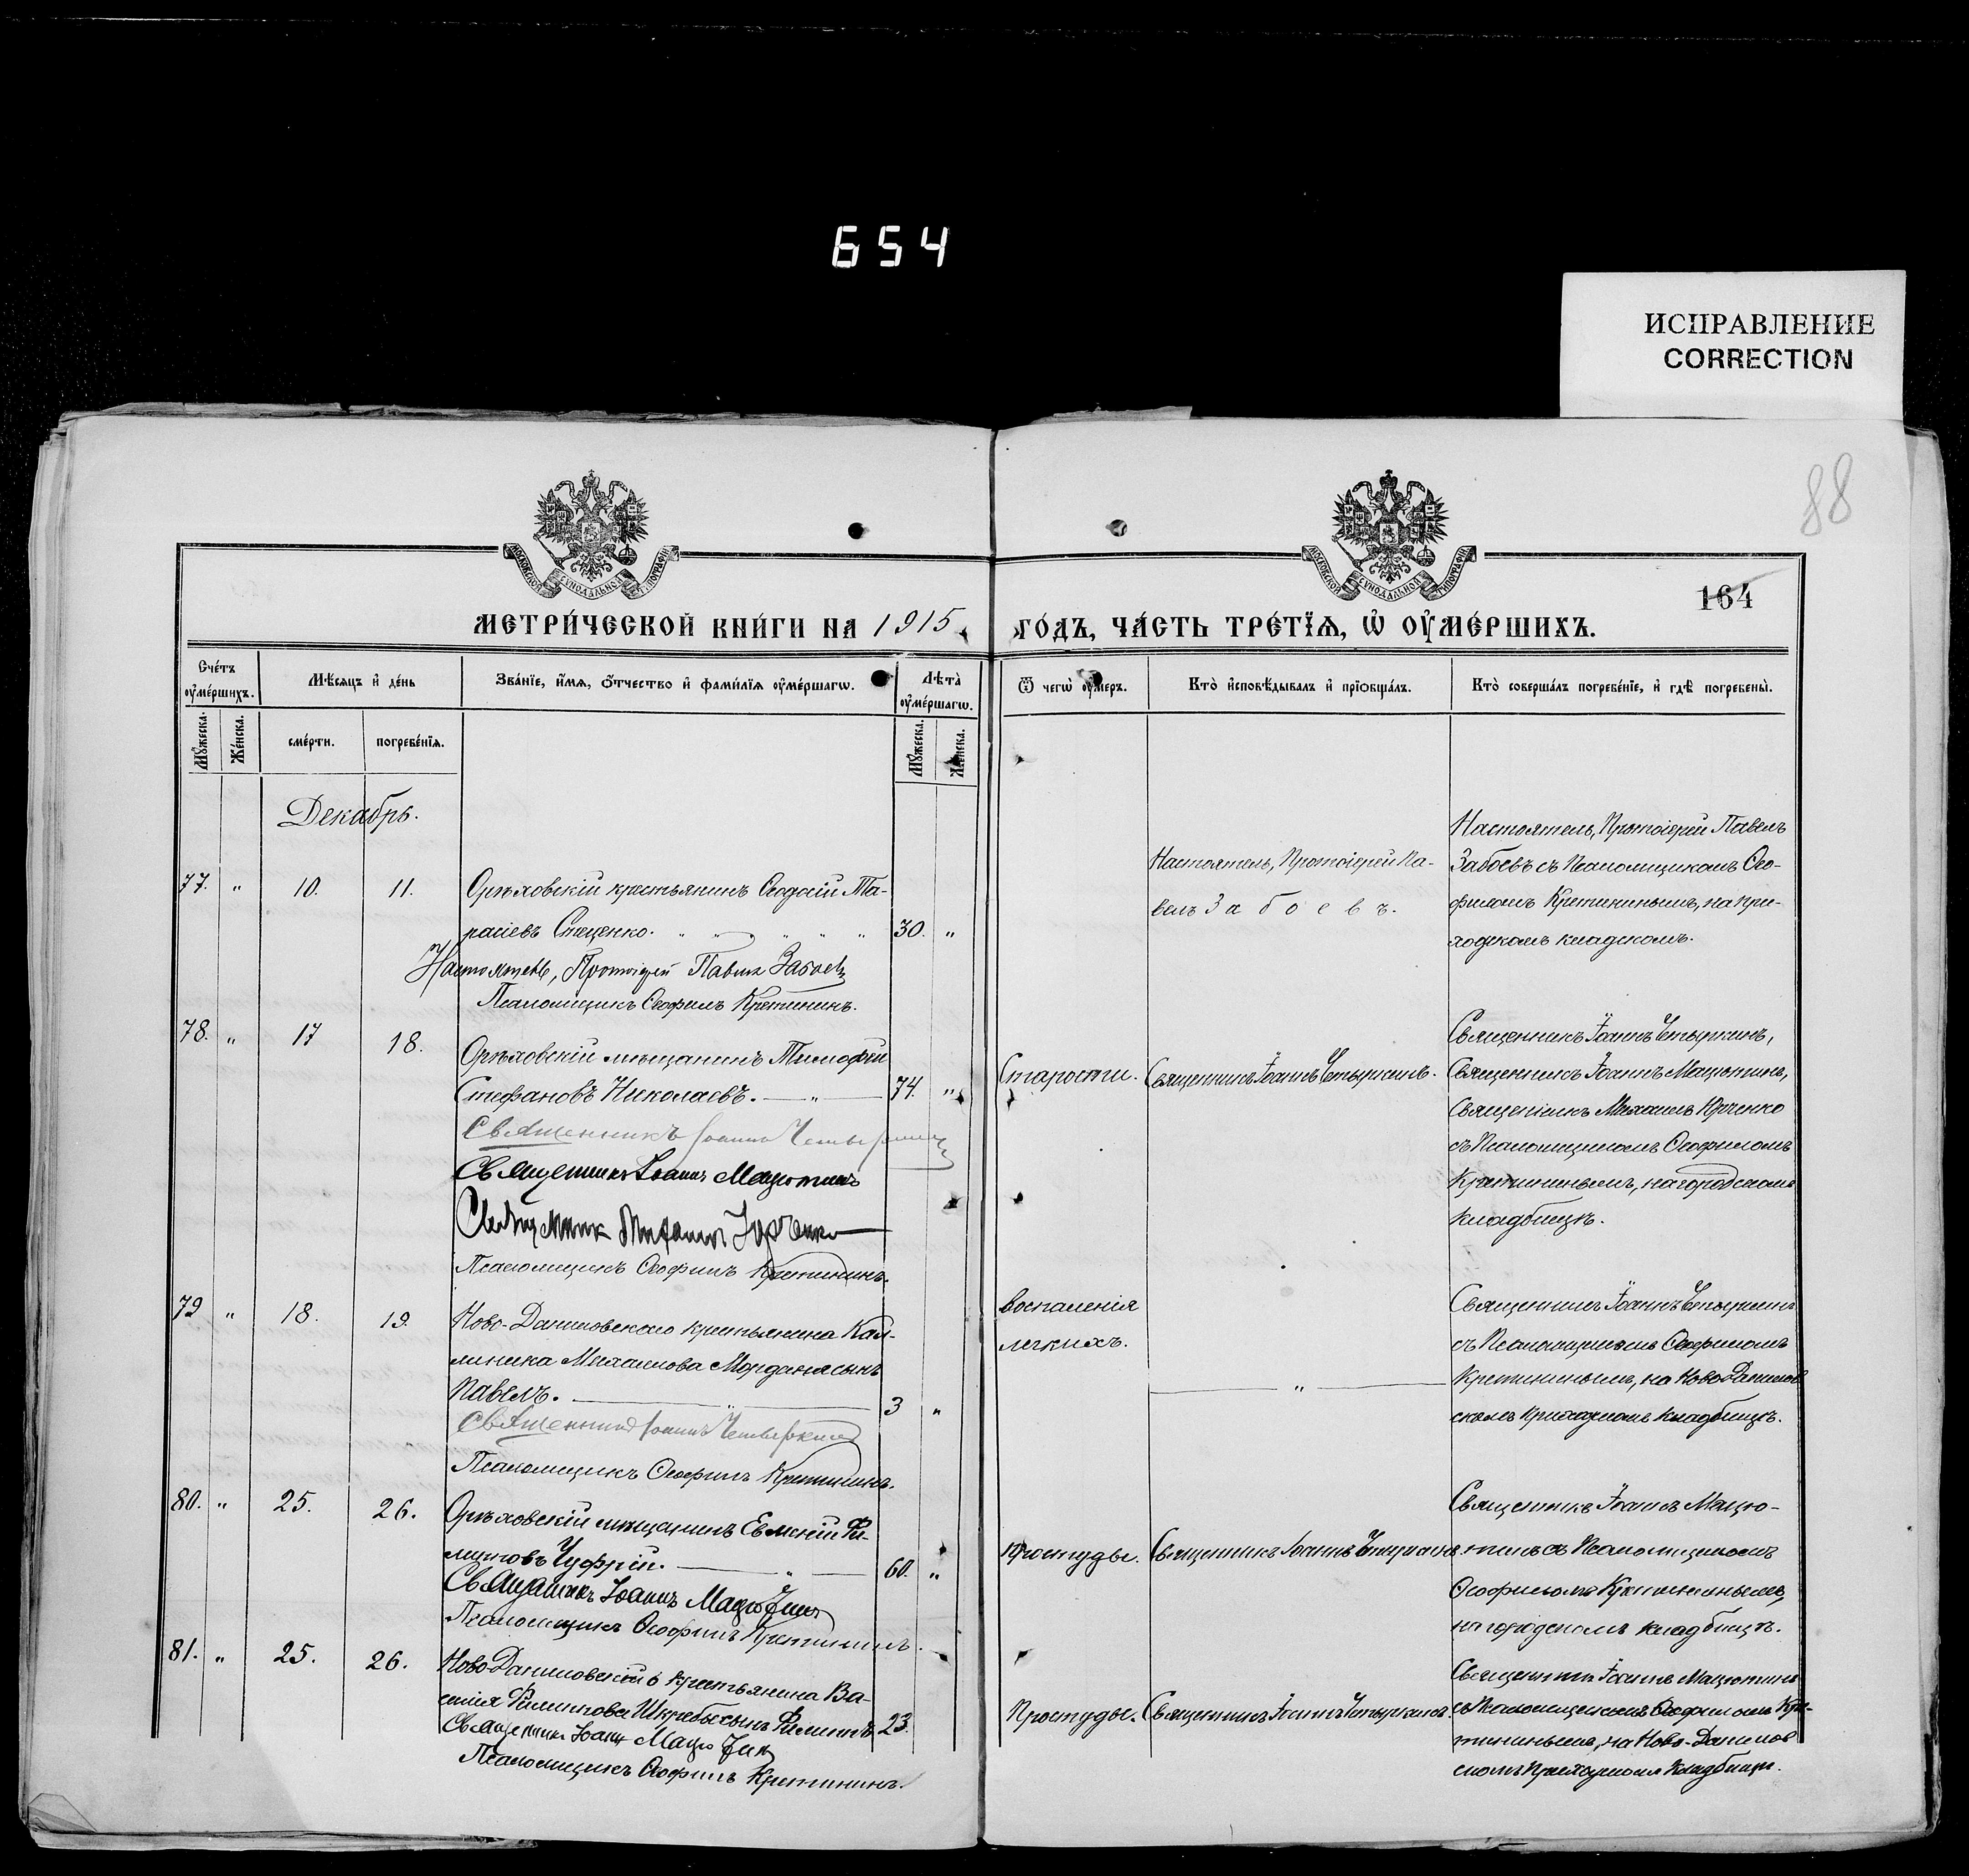 654
ИСПРАВЛЕНИЕ
CORRECTION
88
164
МЕТРИ́ЧЕСКОЙ КНИ́ГИ НА 1915
ГО́ДЪ, ЧА́СТЬ ТРЕ́ТЇѦ, Ѡ҆ ОУ҆МЕ́РШИХЪ.
Сче́тъ оу҆ме́ршихъ.
Мѣ́сяцъ и҆ де́нь
Зва́нїе, и҆́мя, ѻ҆́тчество и҆ фами́лїя оу҆ме́ршагѡ.
Лѣта̀ оу҆ме́ршагѡ.
Ѿ чегѡ̀ оу҆́меръ.
Кто̀ и҆сповѣ́дывалъ и҆ прїобща́лъ.
Кто̀ соверша́лъ погребе́нїе, и҆ гдѣ̀ погребены̀.
Мꙋ́жеска.
Же́нска.
сме́рти.
погребе́нїя.
Мꙋ́жеска.
Же́нска.
Декабрь.
77. " 10. 11.
Орѣховскій крестьянинъ Ѳеодосій Та-
расіевъ Стеценко. 30. "
Настоятель, Протоіерей Павелъ Забоевъ
Псаломщикъ Ѳеофилъ Кретининъ.
Настоятель, Протоіерей Па-
велъ Забоевъ.
Настоятель, Протоіерей Павелъ
Забоевъ съ Псаломщикомъ Ѳео-
филомъ Кретининымъ, на при-
ходскомъ кладскомъ.
78. " 17 18.
Орѣховскій мѣщанинъ Тимофей
Стефановъ Николаевъ. — " — 74. "
Священникъ Іоаннъ Четыркинъ
Священникъ Іоаннъ Мацютинъ
Священник Михаилъ Юрченко
Псаломщикъ Ѳеофилъ Кретининъ.
Старости.
Священникъ Іоаннъ Четыркинъ.
Священникъ Іоаннъ Четыркинъ,
Священникъ Іоаннъ Мацютинъ,
Священникъ Михаилъ Юрченко
съ Псаломщикомъ Ѳеофиломъ
Кретининымъ, на городскомъ
кладбищѣ.
79 " 18. 19.
Ново-Даниловскаго крестьянина Кал-
линика Михаилова сынъ
Павелъ. — " — 3 "
Священникъ Іоаннъ Четыркинъ
Псаломщикъ Ѳеофилъ Кретининъ.
Воспаленія
легкихъ.
— " —
Священникъ Іоаннъ Четыркинъ
съ Псаломщикомъ Ѳеофиломъ
Кретининымъ, на Ново-Данилов
скомъ приходскомъ кладбищѣ.
80. " 25. 26.
Орѣховскій мѣщанинъ Фи-
— " — 60. "
Священникъ Іоаннъ Мацютинъ
Псаломщикъ Ѳеофилъ Кретининъ.
Простуды.
Священникъ Іоаннъ Четыркинъ.
Священникъ Іоаннъ Мацю-
тинъ съ Псаломщикомъ
Ѳеофиломъ Кретининымъ,
на городскомъ кладбищѣ.
81. " 25. 26.
Ново-Даниловскій крестьянина Ва-
силія Филиппова сынъ Филиппъ 23.
Священникъ Іоаннъ Мацютинъ
Псаломщикъ Ѳеофилъ Кретининъ.
Простуды.
Священникъ Іоаннъ Четыркинъ.
Священникъ Іоаннъ Мацютинъ
съ Псаломщикомъ Ѳеофиломъ Кре-
тининымъ, на Ново-Данилов
скомъ приходскомъ кладбищѣ.